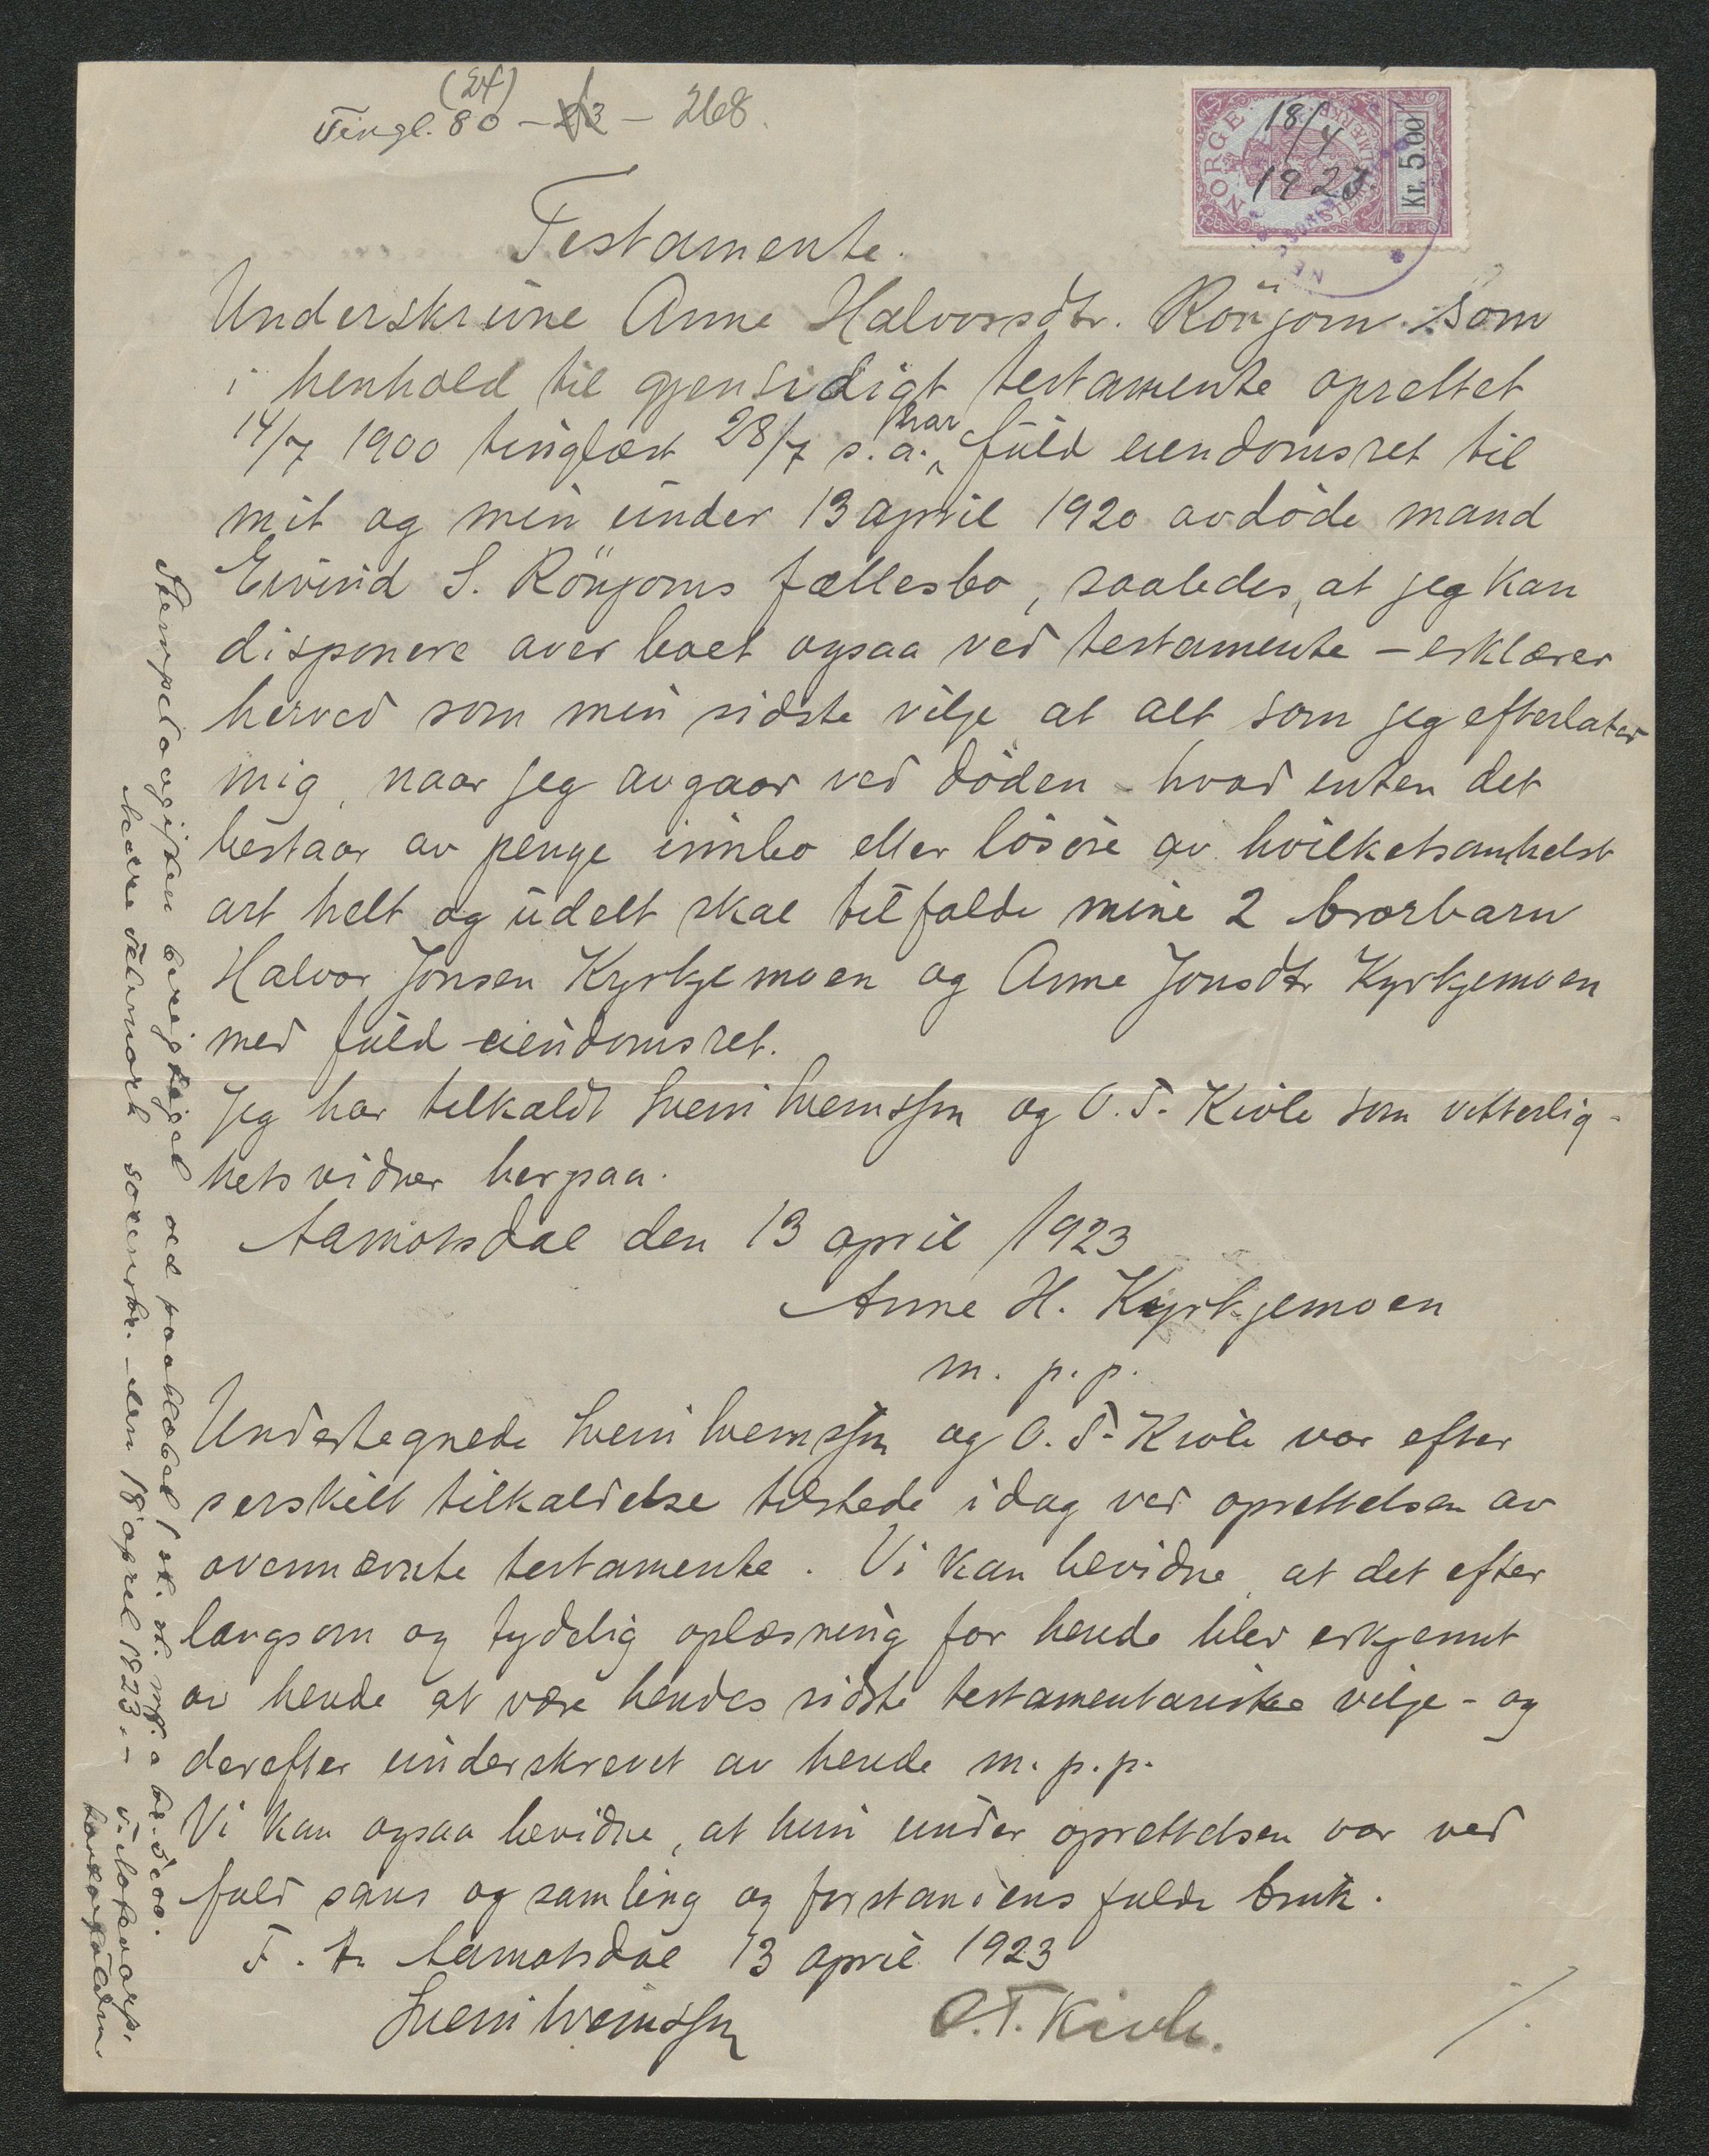 (Ef)
Tingl. 80 - - 268.
NORGE
STEMPELMERKE
Kr. 5.00
18/4
1923
Testamente.
Underskrivne Anne Halvorsdtr. Rönjom som
i henhold til gjensidigt testamente oprettet
14/7 1900 tinglæst 28/7 s.a. har fuld eiendomsret til
mit og min under 13 april 1920 avdöde mand
Eivind S. Rönjoms fællesbo, saaledes, at jeg kan
disponere over boet ogsaa ved testamente - erklærer
herved som min sidste vilje at alt som jeg efterlater
mig, naar jeg avgaar ved döden - hvad enten det
bestaar av penge innbo eller lösöre av hvilketsomhelst
art helt og udelt skal tilfalde mine 2 brorbarn
Halvor Jonsen Kyrkjemoen og Anne Jonsdtr Kyrkjemoen
med fuld eiendomsret.
Jeg har tilkaldt Svein Sveinsson og O. T. Kivle som vitterlig-
hetsvidner herpaa.
Aamotsdal den 13 april 1923
Anne H. Kyrkjemoen
m. p. p.
Undertegnede Svein Sveinsson og O. T. Kivle var efter
serskilt tilkaldelse tilstede idag ved oprettelsen av
ovennævnte testamente. Vi kan bevidne, at det efter
langsom og tydelig oplæsning for hende blev erkjennt
av hende at være hendes sidste testamentariske vilje - og
derefter underskrevet av hende m. p. p.
Vi kan ogsaa bevidne, at hun under oprettelsen var ved
fuld sans og samling og forstandens fulde bruk.
F. t. Aamotsdal 13 april 1923
Svein Sveinsson O. T. Kivle.
./.
Stempelavgiften berigtiget ved paaklæbet 1 st. st. mrk. a kr. 5.00.
Nedre Telemark sorenskr. den 18 april 1923. -